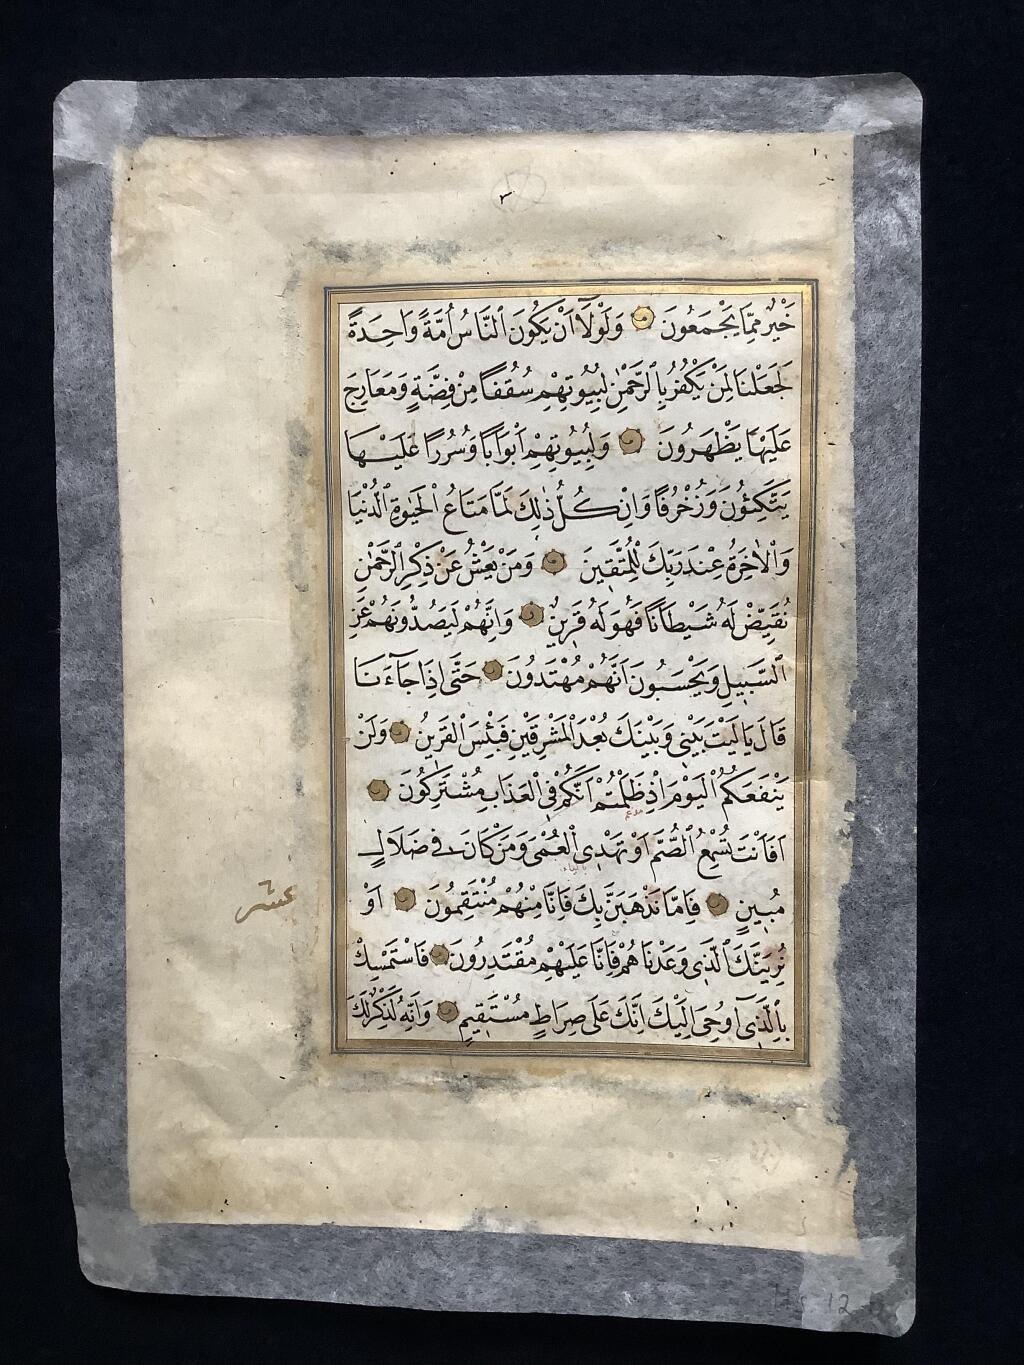 خَيْرٌ مِمَّا يَجْمَعُونَ وَلَوْلَٓا اَنْ يَكُونَ النَّاسُ اُمَّةً وَاحِدَةً
لَجَعَلْنَا لِمَنْ يَكْفُرُ بِالرَّحْمٰنِ لِبُيُوتِهِمْ سُقُفًا مِنْ فِضَّةٍ وَمَعَارِجَ
عَلَيْهَا يَظْهَرُونَ وَلِبُيُوتِهِمْ اَبْوَابًا وَسُرُرًا عَلَيْهَا
يَتَّكِئُونَ وَزُخْرُفًا وَاِنْ كُلُّ ذٰلِكَ لَمَّا مَتَاعُ الْحَيٰوةِ الدُّنْيَا
وَالْاٰخِرَةُ عِنْدَ رَبِّكَ لِلْمُتَّقِينَ وَمَنْ يَعْشُ عَنْ ذِكْرِ الرَّحْمٰنِ
نُقَيِّضْ لَهُ شَيْطَانًا فَهُوَ لَهُ قَرِينٌ وَاِنَّهُمْ لَيَصُدُّونَهُمْ عَنِ
السَّبِيلِ وَيَحْسَبُونَ اَنَّهُمْ مُهْتَدُونَ حَتَّى اِذَا جَٓاءَنَا
قَالَ يَا لَيْتَ بَيْنِي وَبَيْنَكَ بُعْدَ الْمَشْرِقَيْنِ فَبِئْسَ الْقَرِينُ وَلَنْ
يَنْفَعَكُمُ الْيَوْمَ اِذْ ظَلَمْتُمْ اَنَّكُمْ فِي الْعَذَابِ مُشْتَرِكُونَ
اَفَاَنْتَ تُسْمِعُ الصُّمَّ اَوْ تَهْدِي الْعُمْيَ وَمَنْ كَانَ فِي ضَلَالٍ
مُبِينٍ فَاِمَّا نَذْهَبَنَّ بِكَ فَاِنَّا مِنْهُمْ مُنْتَقِمُونَ اَوْ
عشر
نُرِيَنَّكَ الَّذِي وَعَدْنَاهُمْ فَاِنَّا عَلَيْهِمْ مُقْتَدِرُونَ فَاسْتَمْسِكْ
بِالَّذِٓي اُوحِيَ اِلَيْكَ اِنَّكَ عَلَى صِرَاطٍ مُسْتَقِيمٍ وَاِنَّهُ لَذِكْرٌ لَكَ